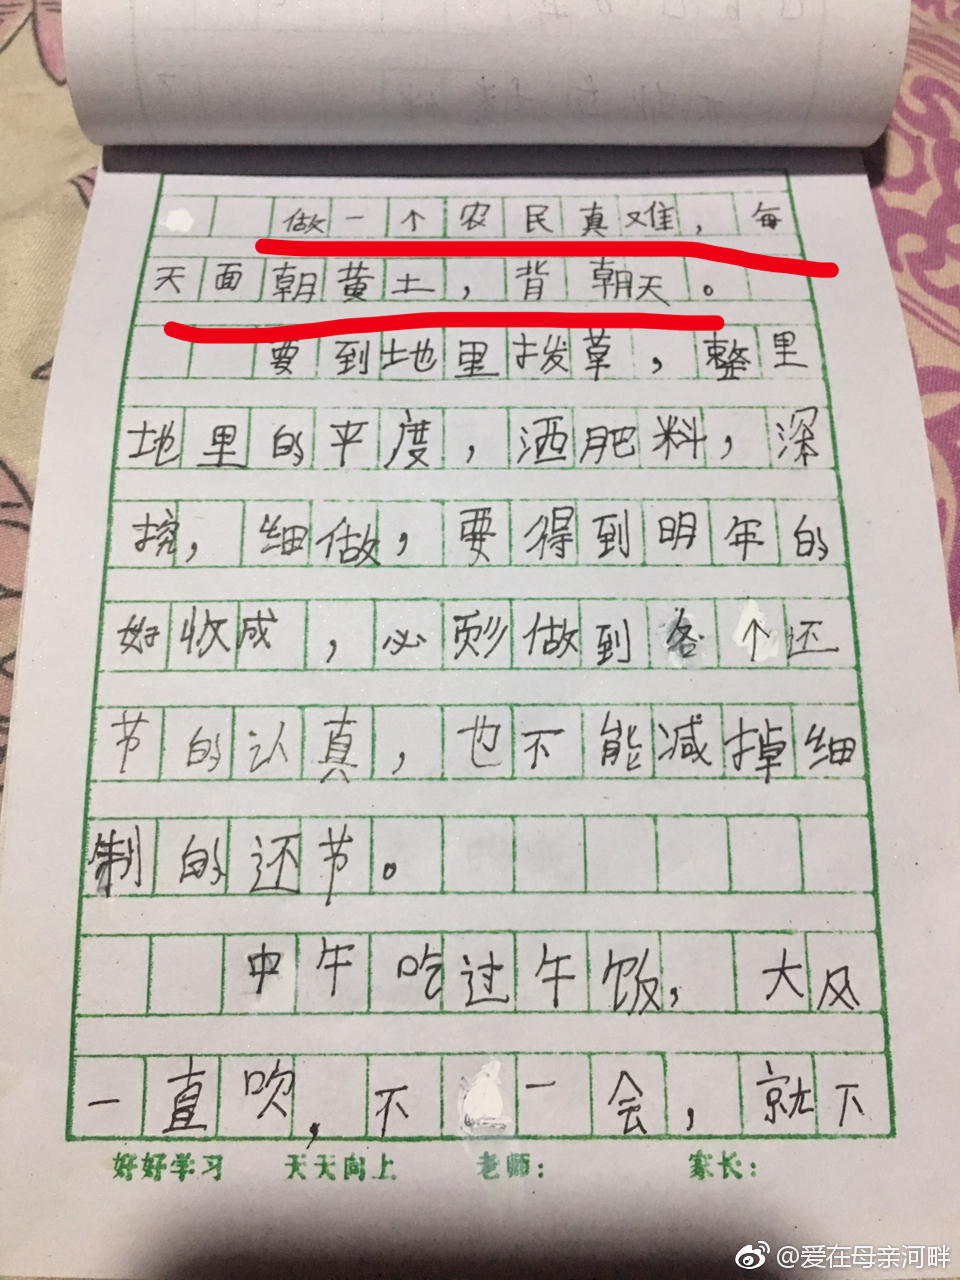 做一个农民真难，每
天面朝黄土，背朝天。
要到地里拨草，整里
地里的平度，洒肥料，深
挖，细做，要得到明年的
好收成，必须做到各个还
节的认真，也不能减掉细
制的还节。
中午吃过午饭，大风
一直吹，不一会，就下
好好学习 天天向上 老师： 家长：
@爱在母亲河畔